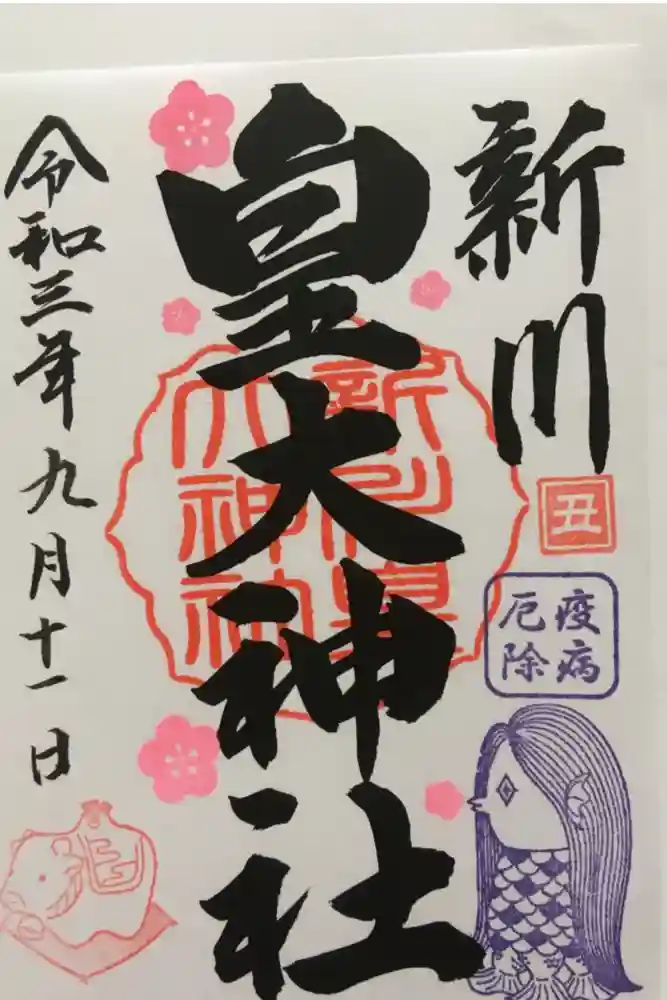 新川
皇大神社
令和三年九月十一日
丑
疫病
厄除
新川皇
大神社